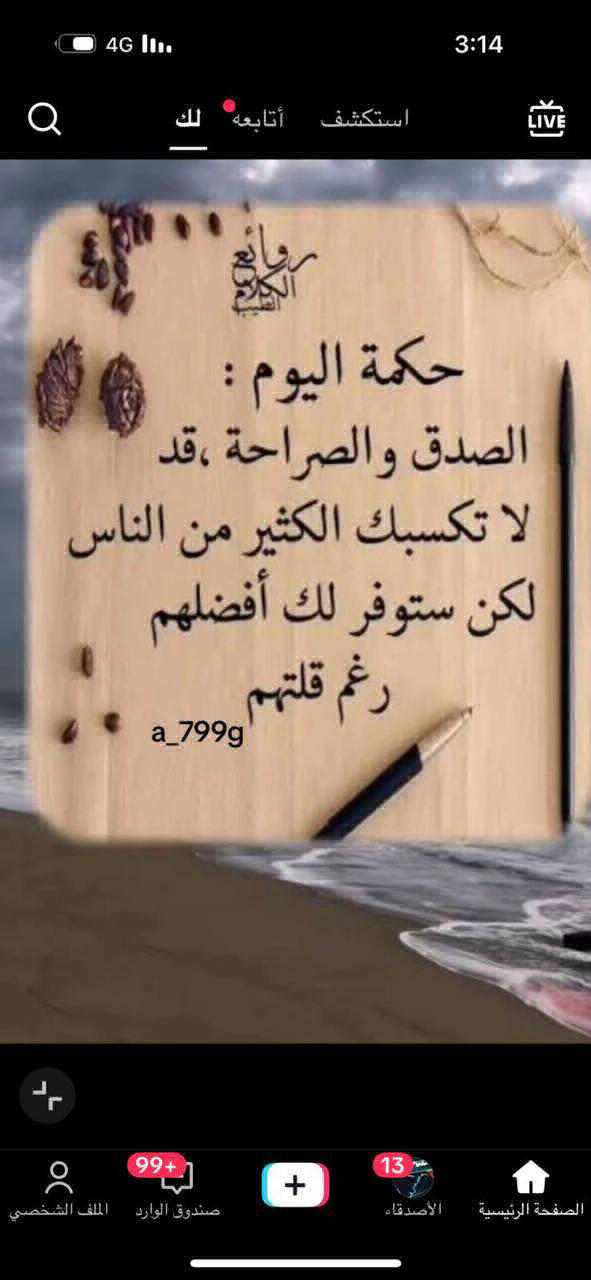 3:14
4G
LIVE
استكشف
أتابعه
لك
روائع
الكلام
الطيب
حكمة اليوم :
الصدق والصراحة ،قد
لا تكسبك الكثير من الناس
لكن ستوفر لك أفضلهم
رغم قلتهم
a_799g
الصفحة الرئيسية
13
الأصدقاء
99+
صندوق الوارد
الملف الشخصي